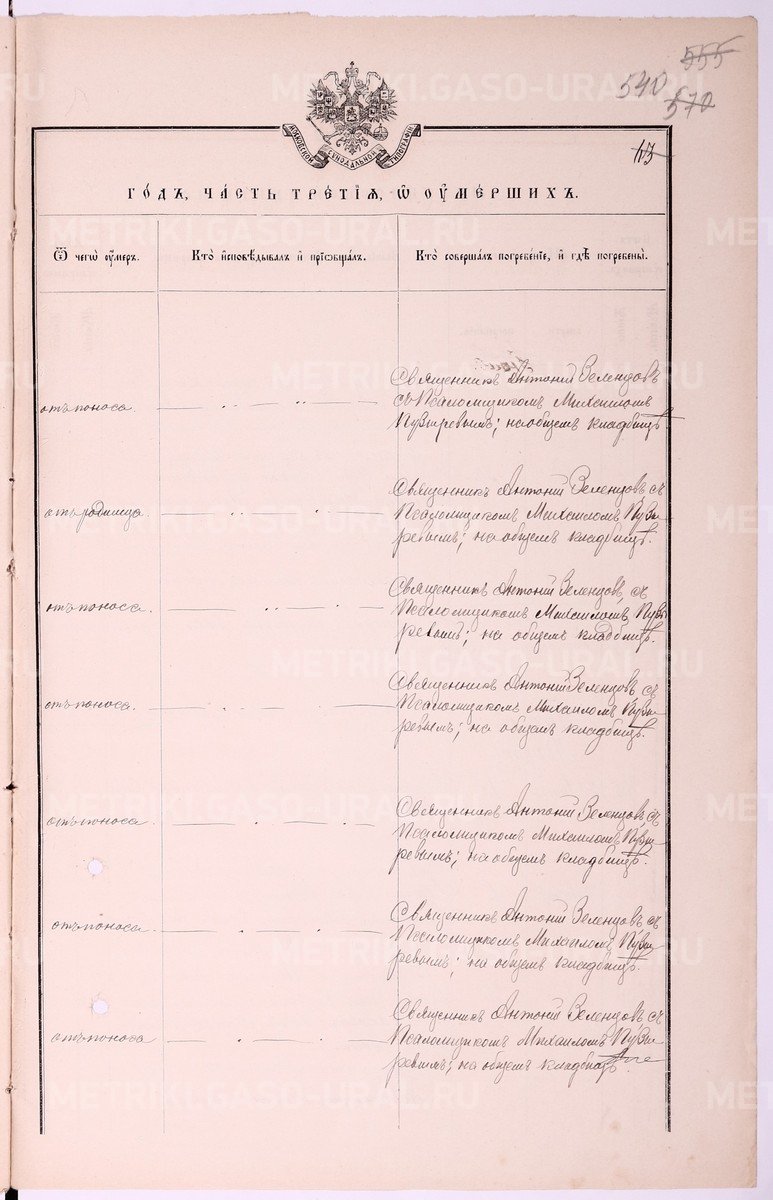 555
540
570
МОСКОВСКОЙ СѴНОДАЛЬНОЙ ТИПОГРАФІИ
113
ГО́ДЪ, ЧА́СТЬ ТРЕ́ТІѦ, Ѡ҆ ОУ҆МЕ́РШИХЪ.
Ѿ чегѡ̀ ᲂу҆́меръ.
Кто̀ и҆сповѣ́дывалъ и҆ прїѡбща́лъ.
Кто̀ соверша́лъ погребе́нїе, и҆ гдѣ̀ погребены̀.
отъ поноса.
Священникъ Антоній Зеленцовъ
съ Псаломщикомъ Михаиломъ
Пузыревымъ; на общемъ кладбищѣ
отъ родимца.
Священникъ Антоній Зеленцовъ съ
Псаломщикомъ Михаиломъ Пузы-
ревымъ; на общемъ кладбищѣ.
отъ поноса.
Священникъ Антоній Зеленцовъ съ
Псаломщикомъ Михаиломъ Пузы
ревымъ; на общемъ кладбищѣ.
отъ поноса.
Священникъ Антоній Зеленцовъ съ
Псаломщикомъ Михаиломъ Пузы-
ревымъ; на общемъ кладбищѣ.
отъ поноса
Священникъ Антоній Зеленцовъ съ
Псаломщикомъ Михаиломъ Пузы-
ревымъ; на общемъ кладбищѣ.
отъ поноса.
Священникъ Антоній Зеленцовъ съ
Псаломщикомъ Михаиломъ Пузы-
ревымъ; на общемъ кладбищѣ.
отъ поноса
Священникъ Антоній Зеленцовъ съ
Псаломщикомъ Михаиломъ Пузы-
ревымъ; на общемъ кладбищѣ.
METRIKI.GASO-URAL.RU